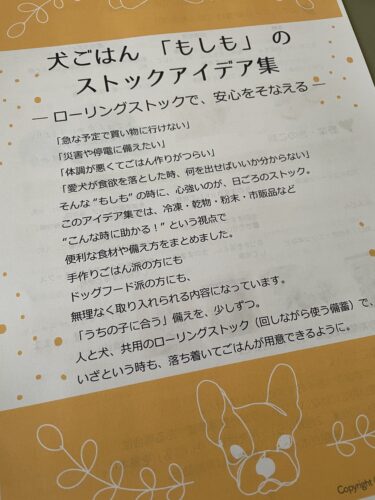 犬ごはん 「もしも」 の
ストックアイデア集
― ローリングストックで、安心をそなえる ―
「急な予定で買い物に行けない」
「災害や停電に備えたい」
「体調が悪くてごはん作りがつらい」
「愛犬が食欲を落とした時、何を出せばいいか分からない」
そんな “もしも” の時に、心強いのが、日ごろのストック。
このアイデア集では、冷凍・乾物・粉末・市販品など
“こんな時に助かる！” という視点で
便利な食材や備え方をまとめました。
手作りごはん派の方にも
ドッグフード派の方にも、
無理なく取り入れられる内容になっています。
「うちの子に合う」備えを、少しずつ。
人と犬、共用のローリングストック（回しながら使う備蓄）で、
いざという時も、落ち着いてごはんが用意できるように。
Copyright